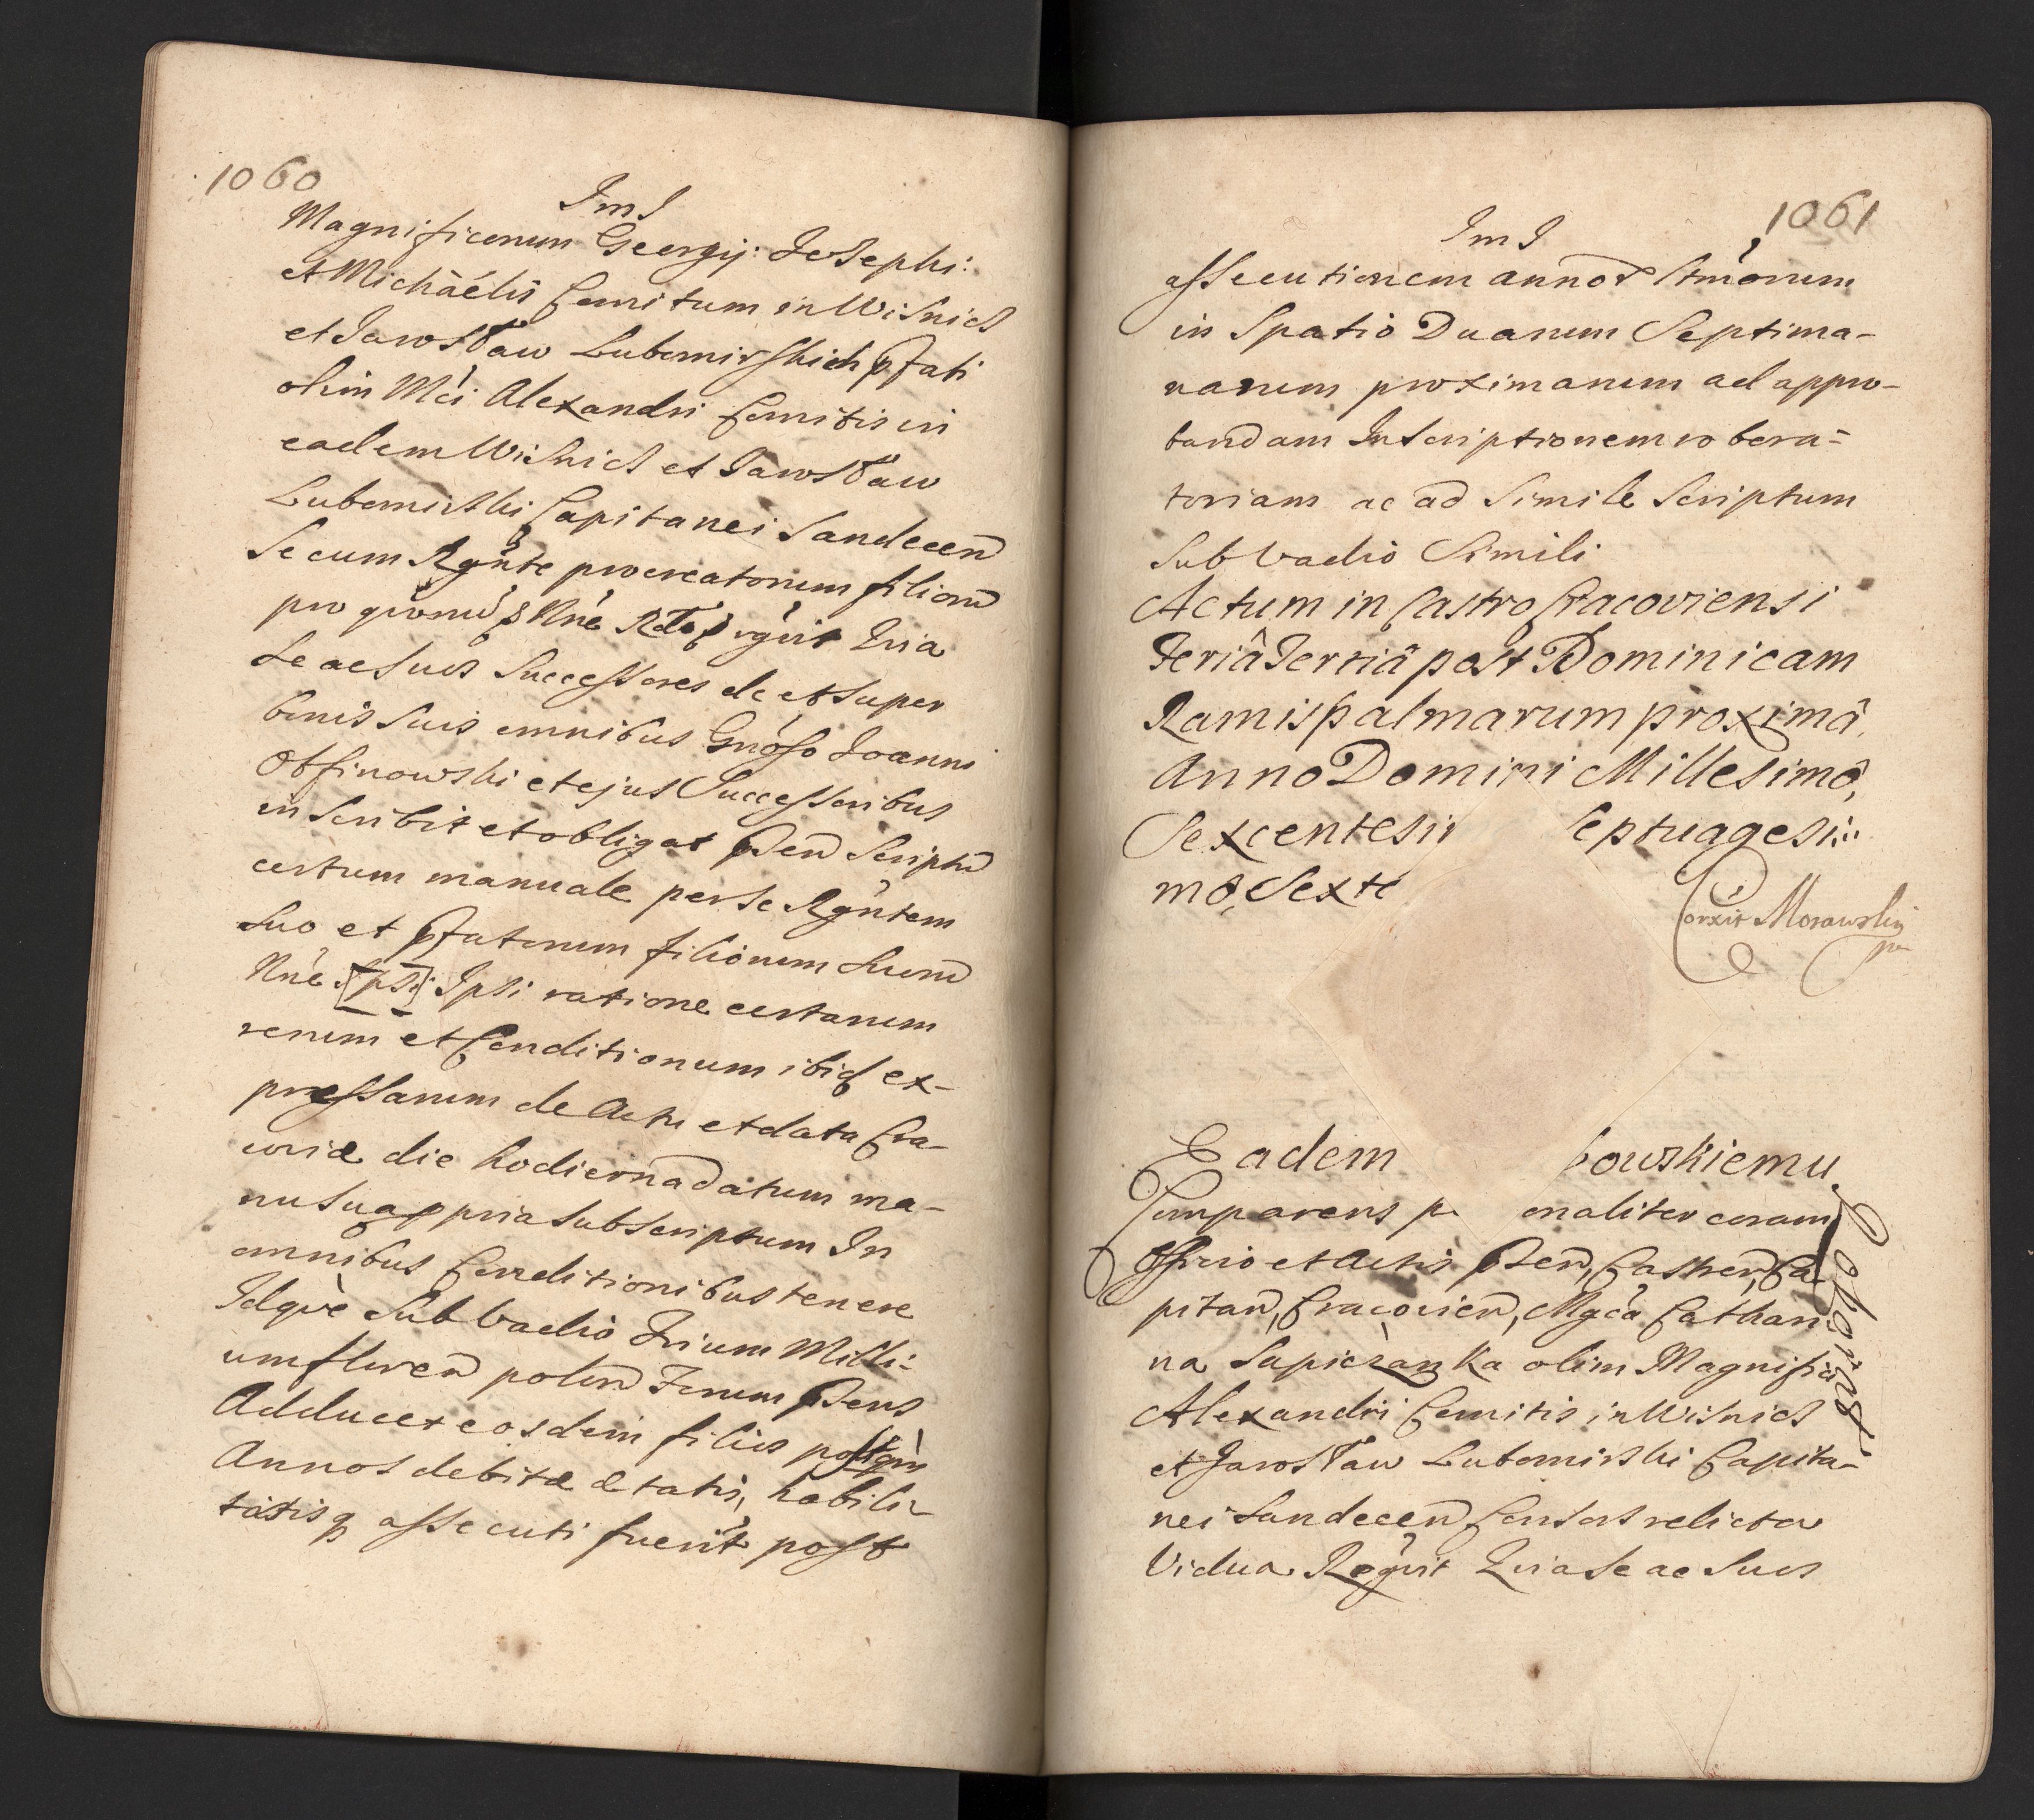 1060
ImJ
Magnificorum Georgij: Josephi:
et Michaélis Comitum in Wisnicz
et Jarosław Lubomirskich pfati
olim Mci Alexandri Comitis in
eadem Wisnicz et Jarosław
Lubomirski Capitanei Sandecen
Secum Rgnte procreatorum filiorum
pro qvorum Nne Quia
se ac suos Successores de et super
bonis suis omnibus Gnoso Joanni
Otfinowski et ejus Successoribus
inscribit et obligat psen Scriptu
certum manuale per se Rgntem
suo et pfatorum filiorum suoru
Nne [Ipsi] Ipsi ratione certarum
rerum et Conditionum ibid ex-
pressarum de Actu et data Cra-
coviæ die hodierna datum ma-
nu sua ppria subscriptum In
omnibus Conditionibus tenere
Idqve sub vadio Trium Milli-
um floren polon Tenens psens
Adducet eosdem filios postqm
Annos debitæ ætatis, habili-
tatisq assecuti fuerint post
1061
ImJ
assecutionem annor Itmorum
in Spatio Duarum Septima-
narum proximarum ad appro-
bandam Inscriptionem robora-
toriam ac ad Simile Scriptum
Sub vadio Simili
Actum in Castro Cracoviensi
Feriâ Tertiâ post Dominicam
Ramispalmarum proximâ,
Anno Domini Millesimô,
Sexcentesi Septuagesi:
mô, Sexto
Corxit Morawski
pr
Eadem bowskiemu
Comparens p onaliter coram
Officio et Actis psen, Castren, Ca
pitan, Cracovien, Mgca Cathari
na Sapiezanka olim Magnifici
Alexandri Comitis in Wisnicz
et Jarosław Lubomirski Capita-
nei Sandecen Consors relicta
Vidua Regvit Quia se ac suos
Roborat.